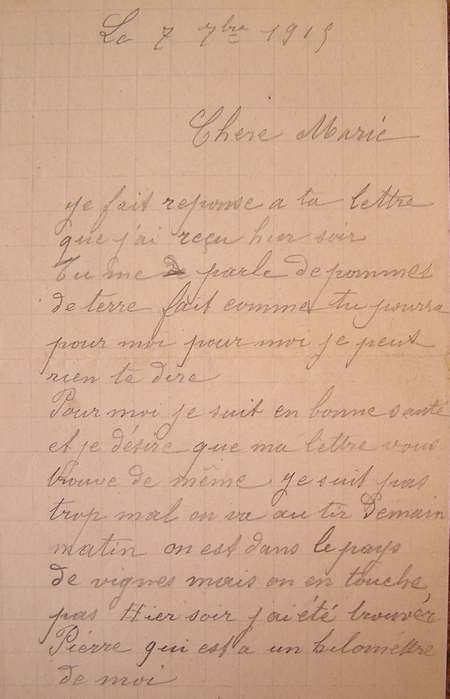 Le 7 7bre 1915
Chere Marie
je fait reponse a ta lettre
que j'ai reçu hier soir
Tu me parle de pommes
de terre fait comme tu pourra
pour moi pour moi je peut
rien te dire
Pour moi je suit en bonne santé
et je désire que ma lettre vous
trouve de même je suit pas
trop mal on va au tir Demain
matin on est dans le pays
de vignes mais on en touche
pas Hier soir j'ai été trouver
Pierre qui est à un kilomêttre
de moi